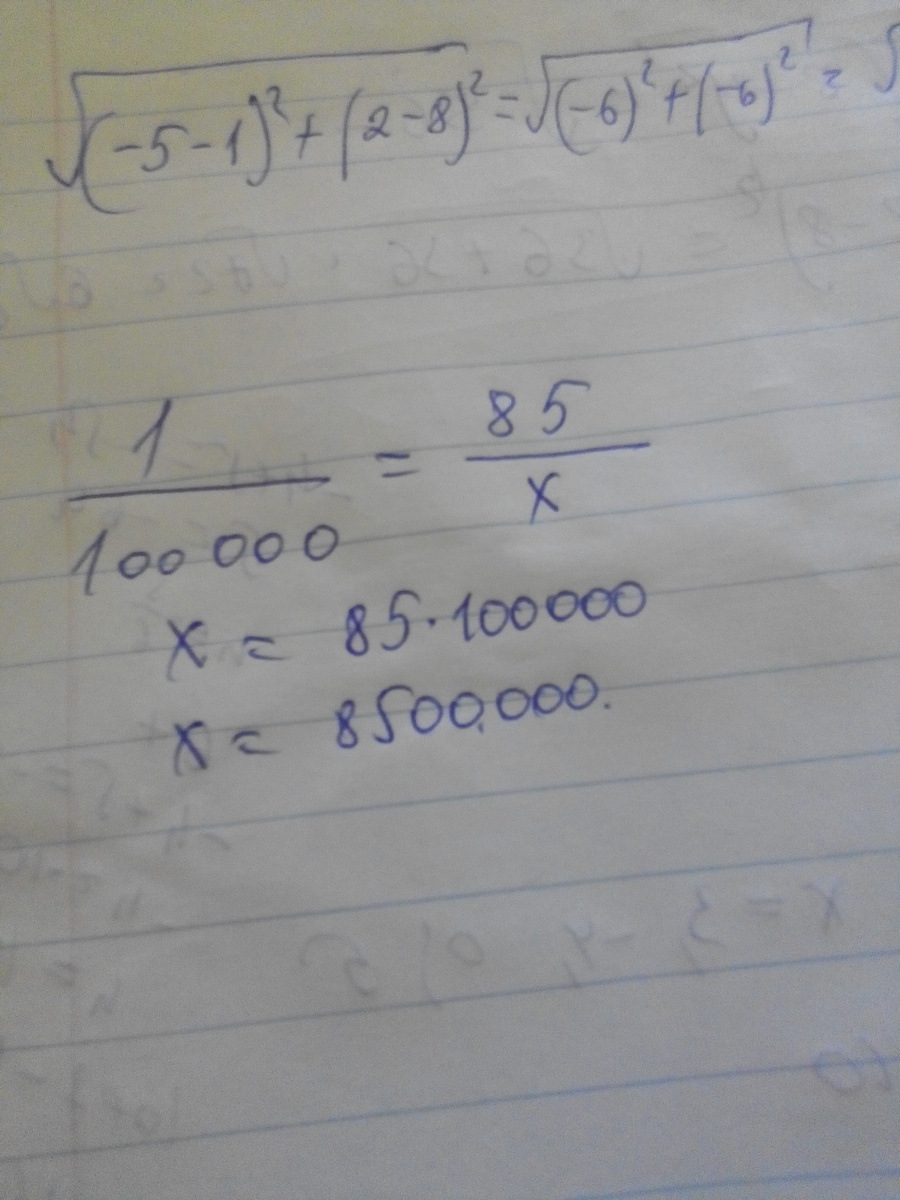 √(-5-1)² + (2-8)² = √(-6)² + (-6)² = √
1/100 000 = 85/x
x = 85·100000
x = 8500.000.